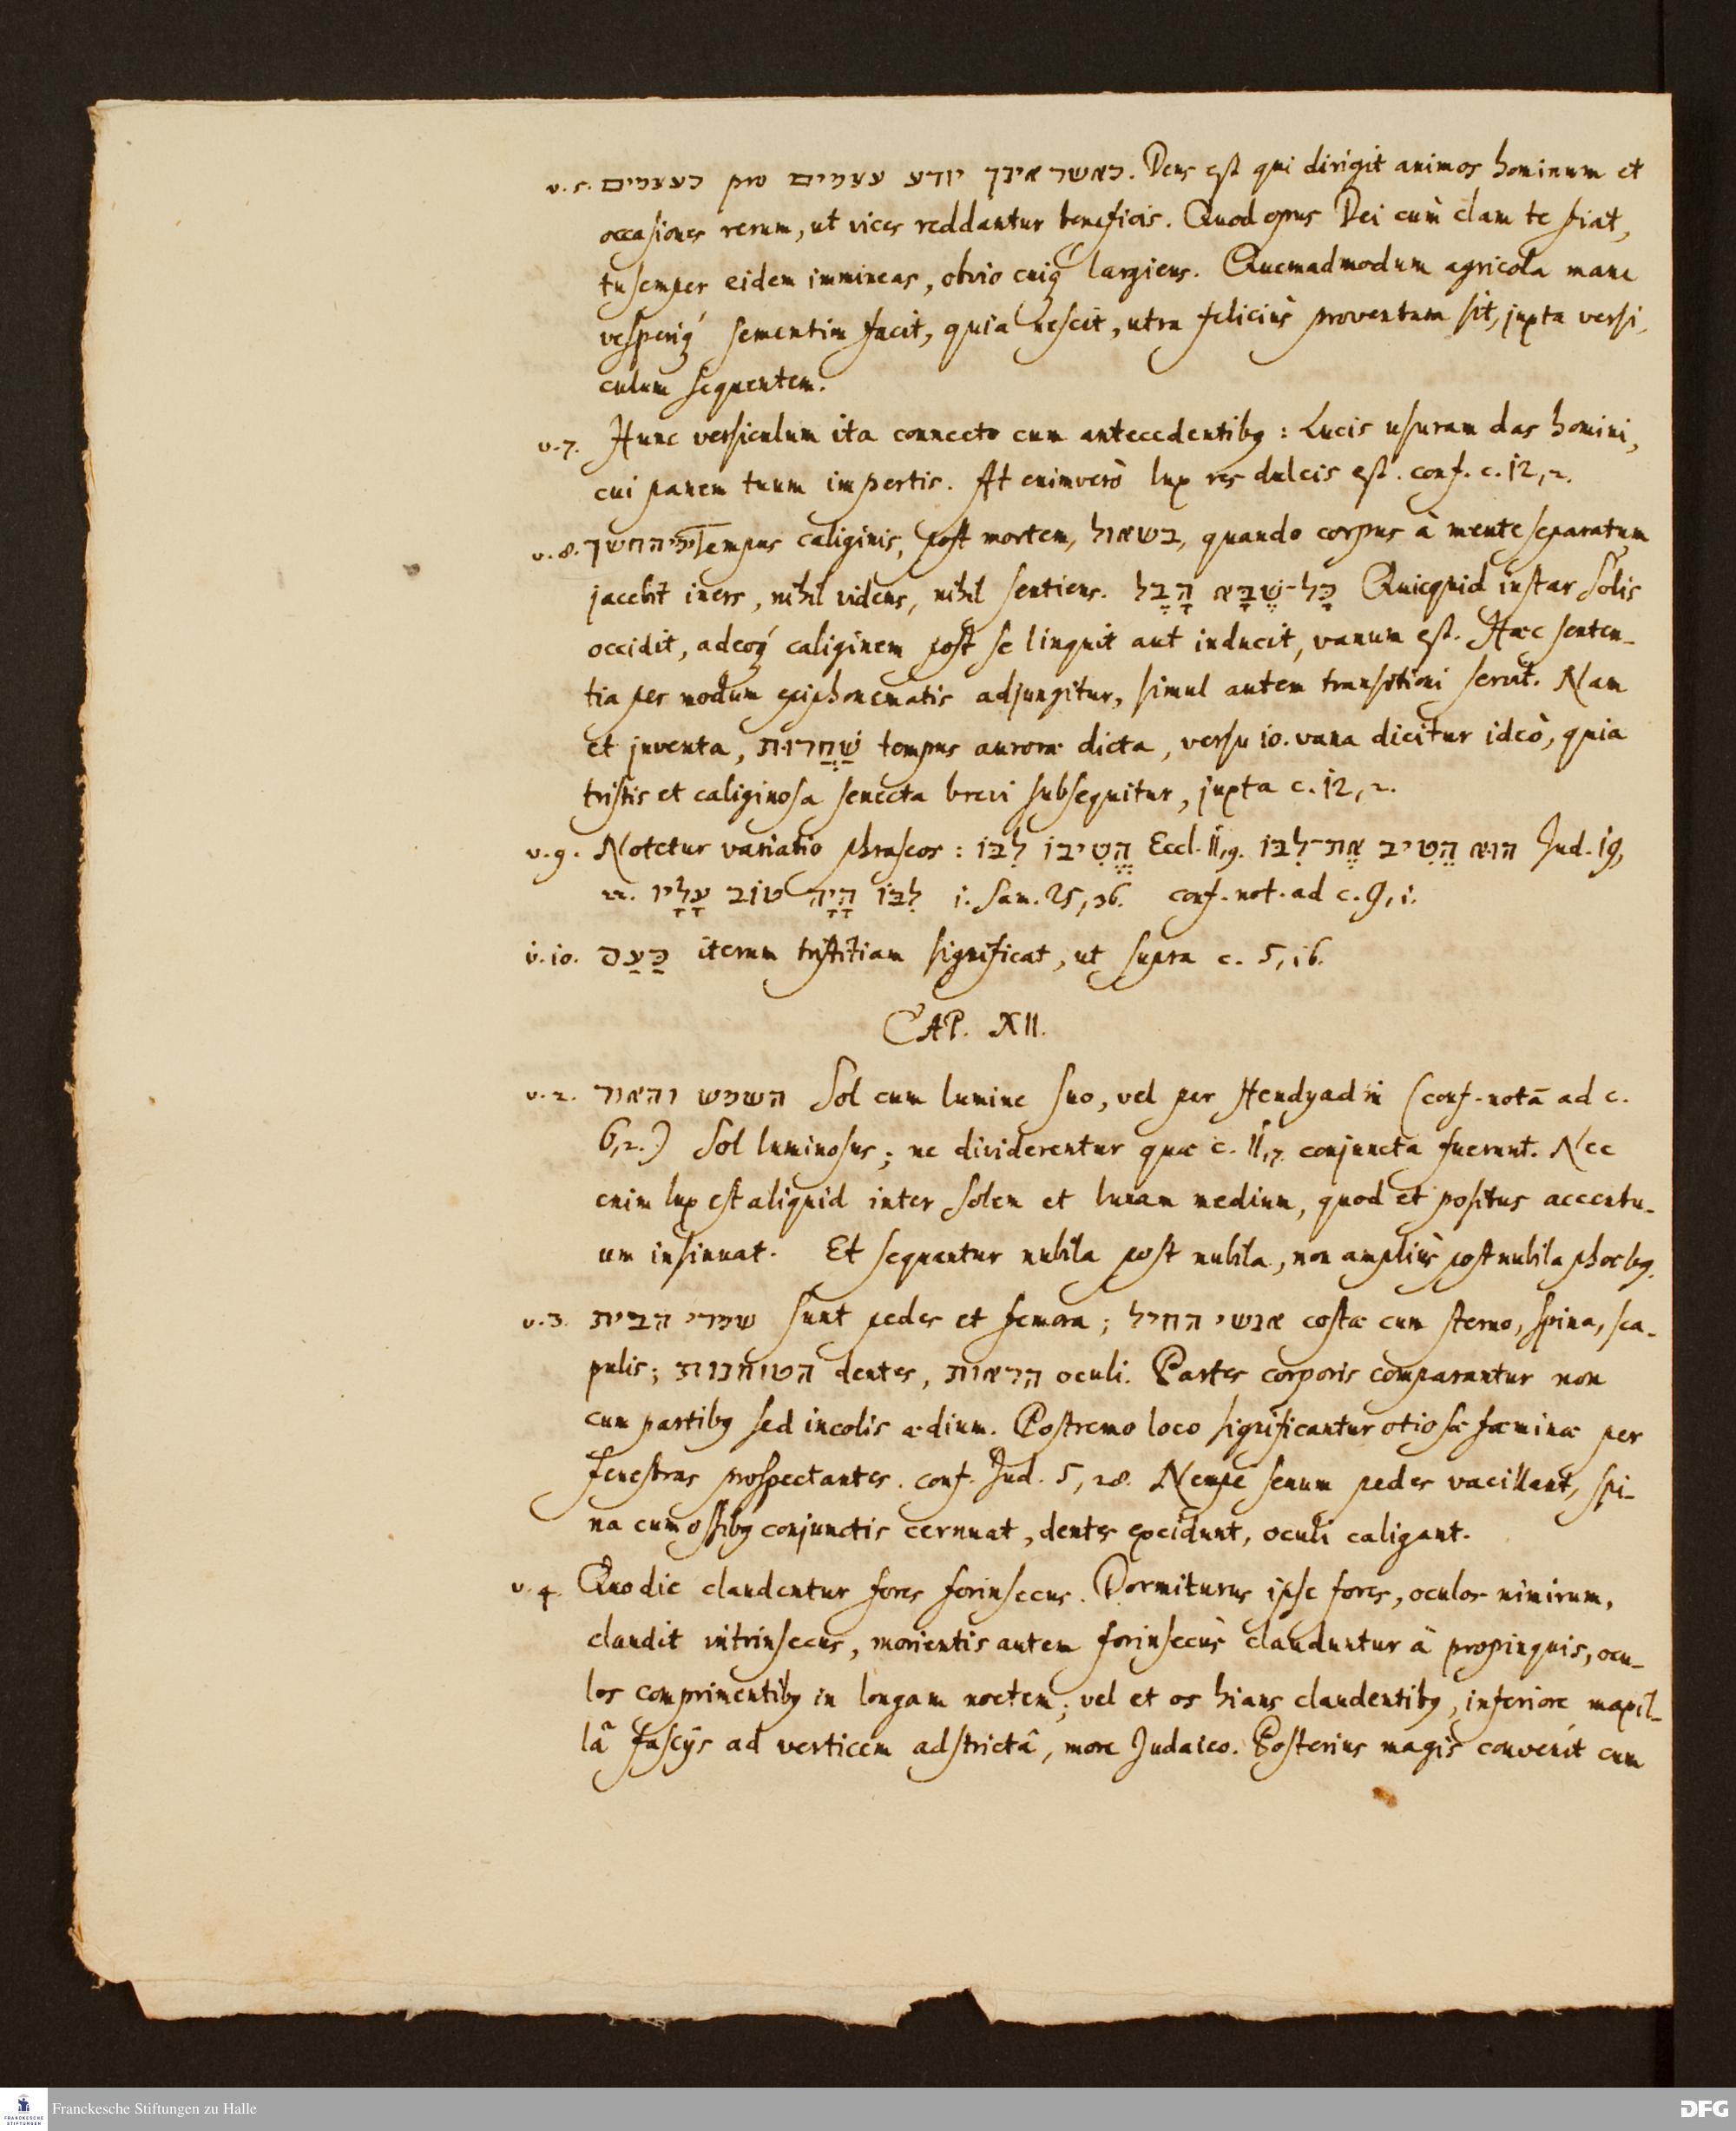 v. 5. כאשר אינך יודע עצמים pro כעצמים. Deus est qui dirigit animos hominum et
occasiones rerum, ut vices reddantur beneficis. Quod opus Dei cùm clam te fiat,
tu semper eidem immineas, obvio cuiq́ largiens. Quemadmodum agricola mane
vesperiq́ sementim facit, quia nescit, utra feliciùs proventura sit, juxta versi-
culum sequentem.
v. 7. Hunc versiculum ita connecto cum antecedentibꝰ: Lucis usuram das homini,
cui panem tuum impertis. At enimverò lux res dulcis est. conf. c. 12, 2.
v. 8. ימי החשך Tempus caliginis, post mortem, בשאול, quando corpus à mente separatum
jacebit iners, nihil videns, nihil sentiens. כָּל־שֶׁבָּא הָבֶל Quicquid instar Solis
occidit, adeoq́ caliginem post se linquit aut inducit, vanum est. Hæc senten-
tia per modum epiphonematis adjungitur, simul autem transitioni servit. Nam
et juventa, שַׁחֲרוּת tempus auroræ dicta, versu 10. vana dicitur ideò, quia
tristis et caliginosa senecta brevi subsequitur, juxta c. 12, 2.
v. 9. Notetur variatio phraseos: הֱטִיבוֹ לִבּוֹ Eccl. 11, 9. הוּא הֱטִיב אֶת־לִבּוֹ Jud. 19,
22. לִבּוֹ הָיָה טוֹב עָלָיו 1. Sam. 25, 36. conf. not. ad c. 9, 1.
v. 10. כַּעַס iterum tristitiam significat, ut supra c. 5, 16.
CAP. XII.
v. 2. השמש והאור Sol cum lumine suo, vel per Hendyadin (conf. notã ad c.
6, 2.) Sol luminosus; ne dividerentur quæ c. 11, 7. conjuncta fuerunt. Nec
enim lux est aliquid inter Solem et lunam medium, quod et positus accentu-
um insinuat. Et sequantur nubila post nubila, non ampliùs post nubila phoebꝰ.
v. 3. שמרי הבית sunt pedes et femora; אנשי החיל costæ cum sterno, spina, sca-
pulis; הטוחנות dentes, הראות oculi. Partes corporis comparantur non
cum partibꝰ sed incolis ædium. Postremo loco significantur otiosæ fæminæ per
fenestras prospectantes. conf. Jud. 5, 28. Nempe senum pedes vacillant, spi-
na cum ossibꝰ conjunctis cernuat, dentes excidunt, oculi caligant.
v. 4. Quo die claudentur fores forinsecus. Dormiturus ipse fores, oculos nimirum,
claudit intrinsecus, morientis autem forinsecùs clauduntur à propinquis, ocu-
los comprimentibꝰ in longam noctem; vel et os hians claudentibꝰ, inferiore maxil-
lâ fascijs ad verticem adstrictâ, more Judaico. Posterius magis convenit cum
Franckesche Stiftungen zu Halle
FRANCKESCHE
STIFTUNGEN
DFG